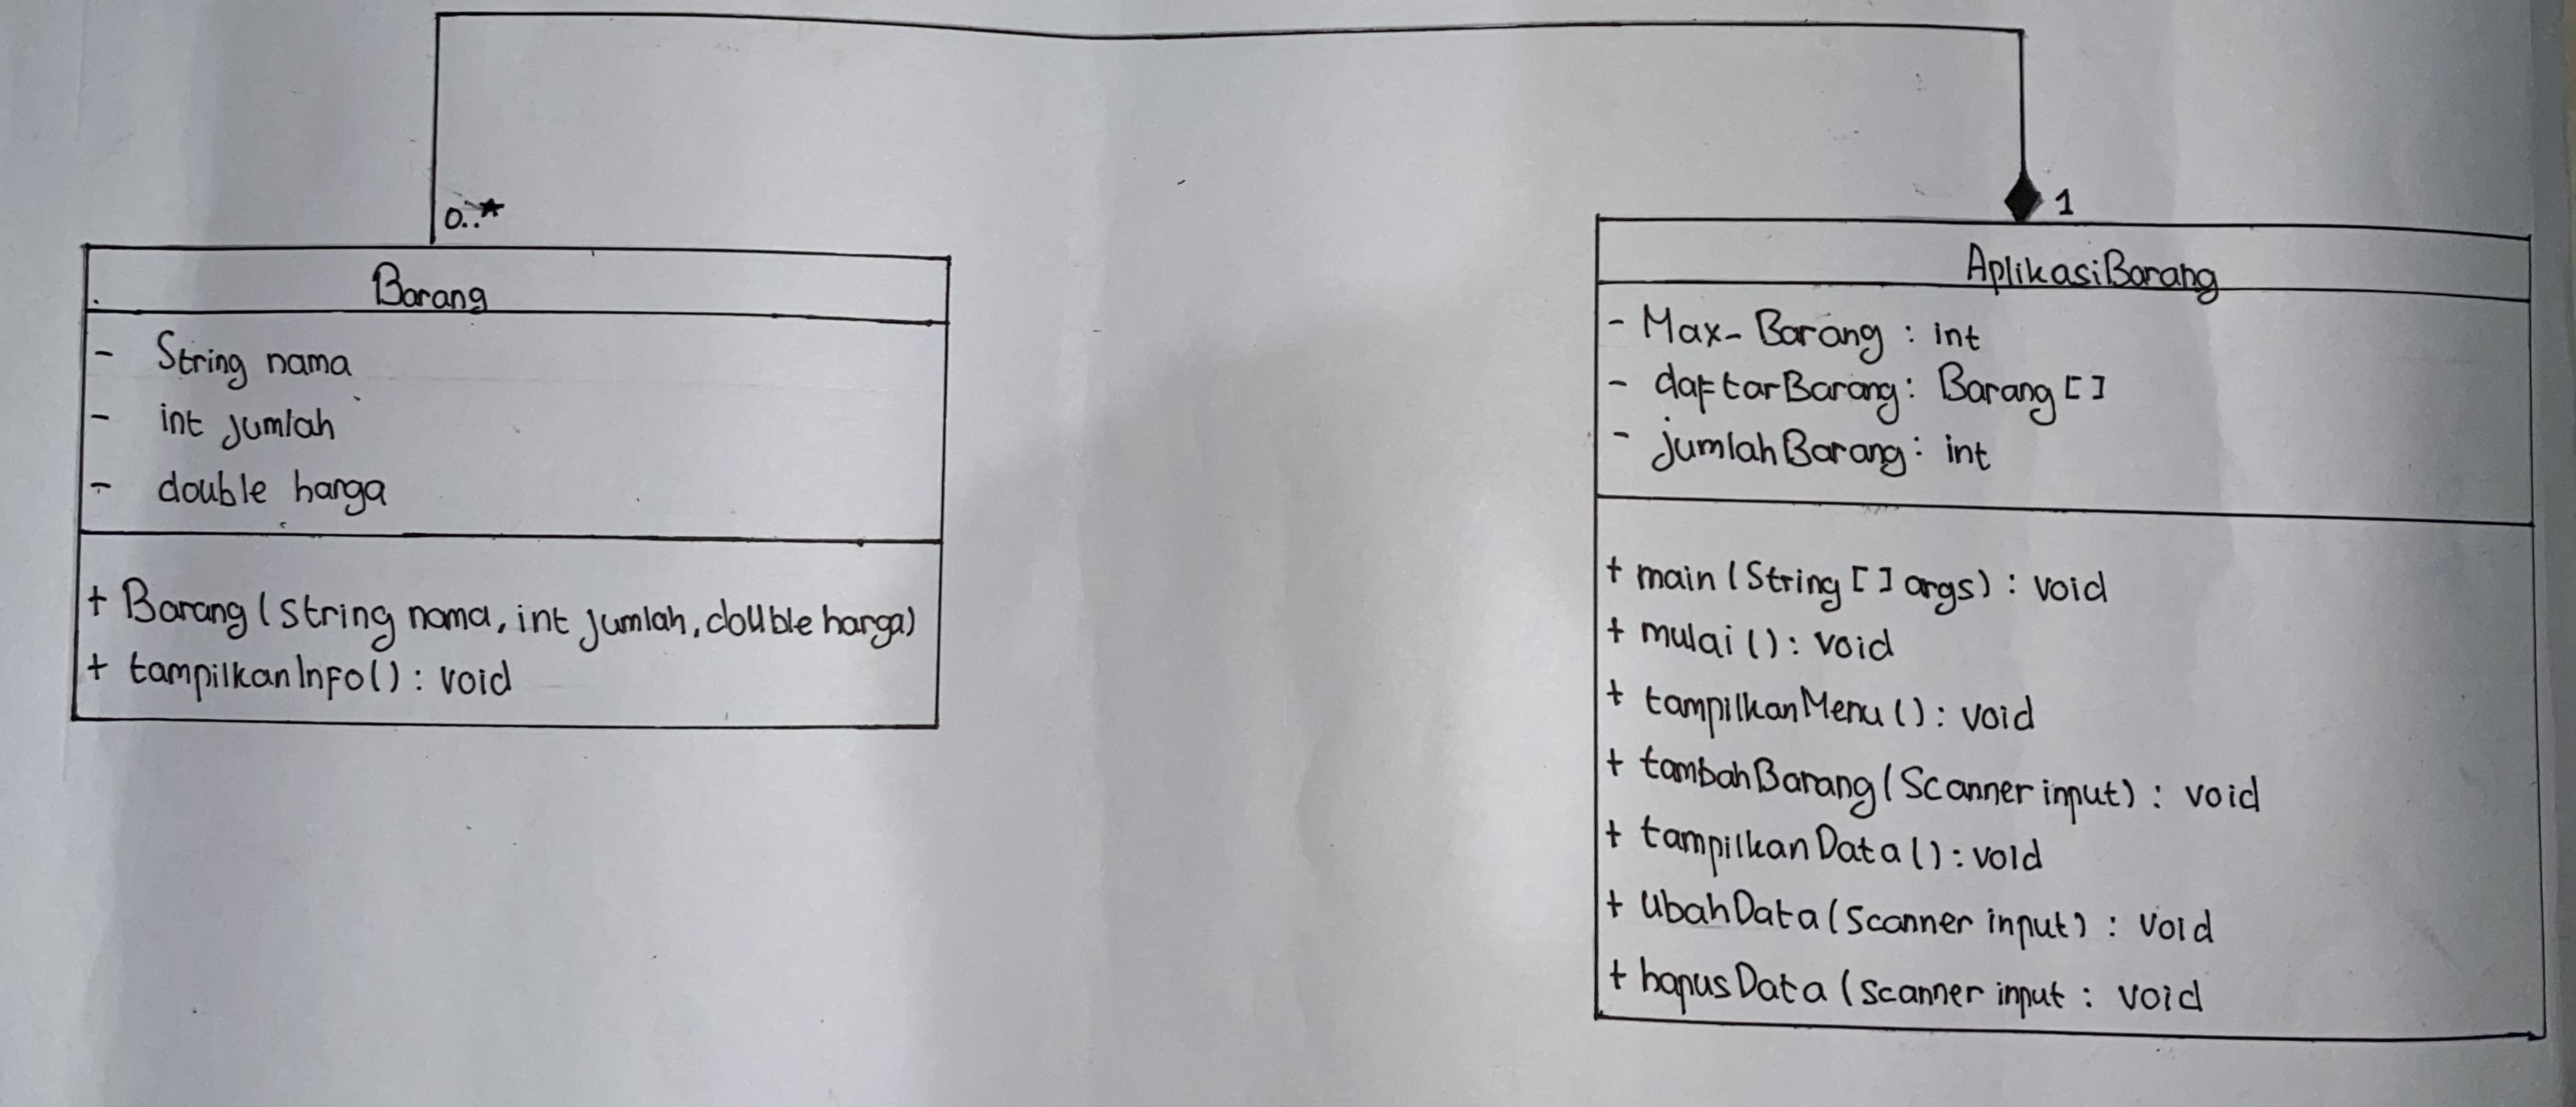 0..*
1
Barang
- String nama
- int jumlah
- double harga
+ Barang (String nama, int jumlah, double harga)
+ tampilkanInfo() : void
AplikasiBarang
- Max_Barang : int
- daftarBarang : Barang []
- jumlahBarang : int
+ main (String [] args) : void
+ mulai () : void
+ tampilkanMenu () : void
+ tambahBarang (Scanner input) : void
+ tampilkanData () : void
+ UbahData (Scanner input) : void
+ hapusData (Scanner input : void